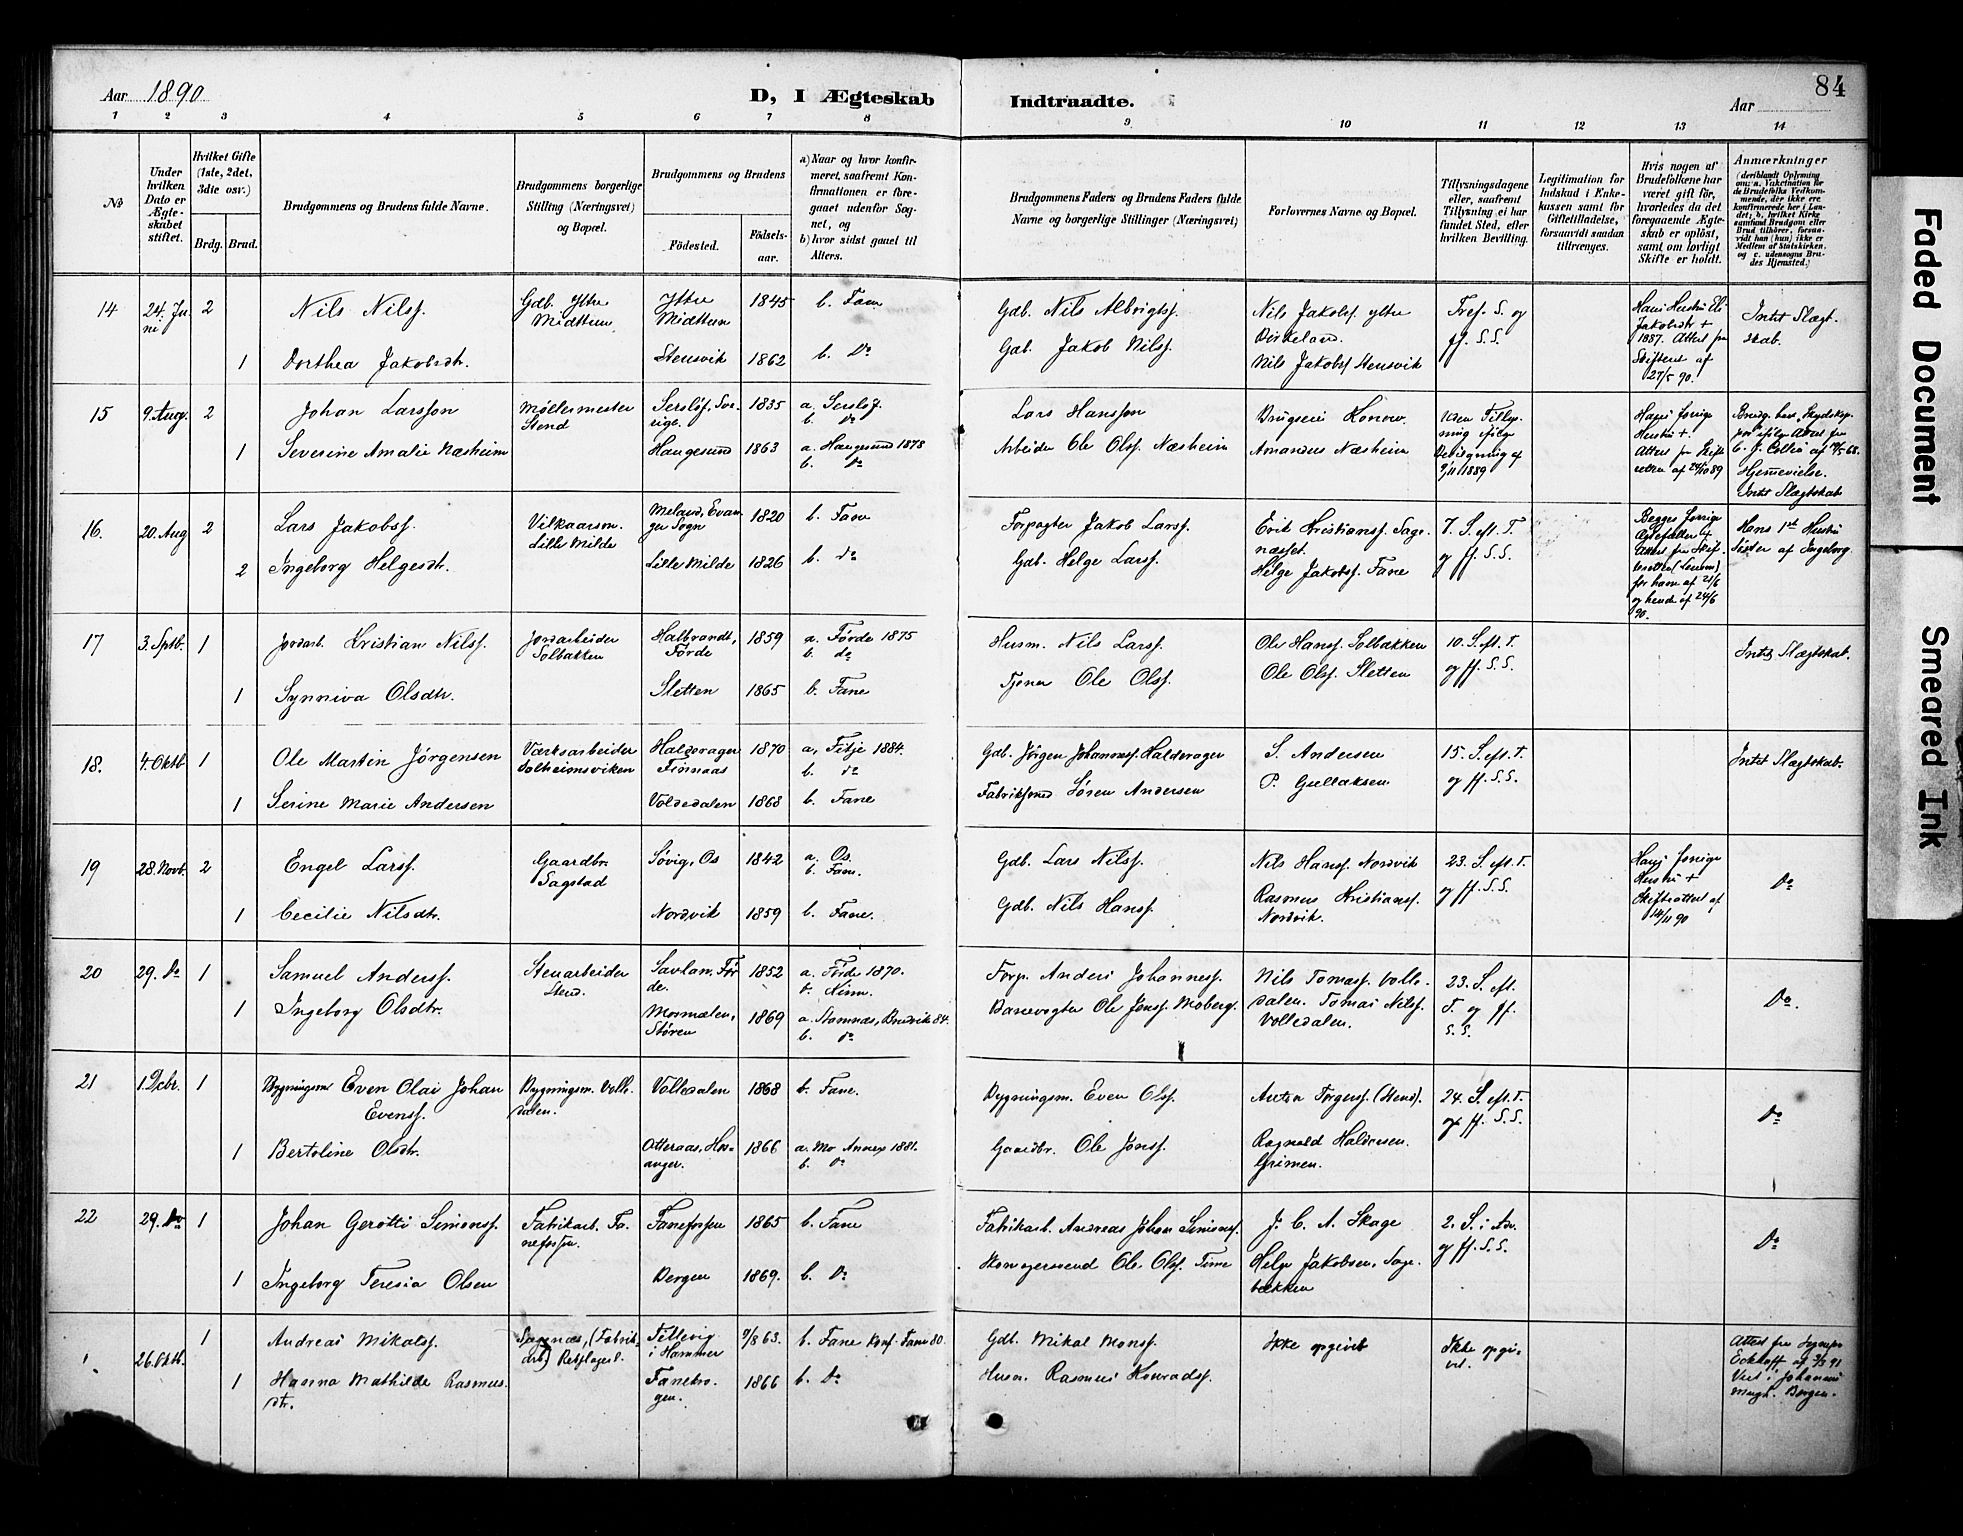 Aar 1890
D, I Ægteskab Indtraadte.
Aar
84
1 2 3 4 5 6 7 8 9 10 11 12 13 14
No
Under hvilken Dato er Ægteskabet stiftet.
Hvilket Gifte (1ste, 2det, 3die osv.)
Brdg. Brud.
Brudgommens og Brudens fulde Navne.
Brudgommens borgerlige Stilling (Næringsvei) og Bopæl.
Brudgommens og Brudens
Födested.
Födselsaar.
a) Naar og hvor konfirmeret, saafremt Konfirmationen er foregaaet udenfor Sognet, og
b) hvor sidst gaaet til Alters.
Brudgommens Faders og Brudens Faders fulde Navne og borgerlige Stillinger (Næringsvei)
Forlovernes Navne og Bopæl.
Tillysningsdagene eller, saafremt Tillysning ei har fundet Sted, efter hvilken Bevilling.
Legitimation for Indskud i Enkekassen samt for Giftetilladelse, forsaavidt saadan tiltrænges.
Hvis nogen af Brudefolkene har været gift för, hvorledes da det foregaaende Ægteskab er oplöst, samt om lovligt Skifte er holdt.
Anmærkninger (deriblandt Oplysning om: a. Vakcination for de Brudefolks Vedkommende, der ikke ere konfirmerede her i Landet; b. hvilket Kirkesamfund Brudgom eller Brud tilhörer, forsaavidt han (hun) ikke er Medlem af Statskirken og c. udensogns Brudes Hjemsted.)
14 24. Juni 2 Nils Nilsf. Gdb. Ytre Midttun Ytre Midttun 1845 b. Fane Gdb. Nils Albrigtsf. Nils Jakobsf ytre Birkeland. Tref. S. og ff. S. S. Hans Hustru Eli Jakobsdtr + 1887. Attest fra Skifteret af 27/5 90. Intet Slægtskab.
1 Dorthea Jakobsdtr. Stensvik 1862 b. Do Gdb. Jakob Nilsf. Nils Jakobsf Stensvik
15 9. Aug. 2 Johan Larsson Møllermester Stend Serslöf, Sverige. 1835 a. Serslöf. b. do Lars Hansson Brugseier Konow. Uden Tillysning ifølge Bevilgning af 9/11 1889 Hans forrige Hustru +. Attest fra Skifteretten af 24/10 89
1 Severine Amalie Næsheim Haugesund 1863 a. Haugesund 1878 b. do Arbeider Ole Olsf. Næsheim Amandus Næsheim Hjemmevielse. Intet Slægtskab
16. 20. Aug 2 Lars Jakobsf. Vilkaarsm. Lille Milde Meland, Evanger Sogn 1820 b. Fane Forpagter Jakob Larsf. Erik Kristiansf. Sagenæsset. 7. S. eft. T. og ff. S. S. Begges forrige Ægtefæller + Attest fra Skifteretten for ham af 21/6 og hende af 24/6 90. Hans 1st Hustru Søster af Ingeborg.
2 Ingeborg Helgesdtr. Lille Milde 1826 b. do Gdb. Helge Larsf. Helge Jakobsf. Fane
17 3. Septb. 1 Jordarb. Kristian Nilsf. Jordarbeider Solbakken Halbrandt, Førde 1859 a. Førde 1875 b. do Husm. Nils Larsf. Ole Hansf. Solbakken 10. S. eft. T. og ff. S. S. Intet Slægtskab.
1 Synniva Olsdtr. Sletten 1865 b. Fane Tjener Ole Olsf. Ole Olsf. Sletten
18. 4. Oktb 1 Ole Martin Jørgensen Værksarbeider Solheimsviken Haldorager Finnaas 1870 a. Fitje 1884. b. do Gdb. Jörgen Johannesf. Haldorager S. Andersen 15. S. eft. T. og ff. S. S. Intet Slægtskab.
1 Serine Marie Andersen Voldedalen 1868 b. Fane Fabriksmd Sören Andersen P. Gullaksen
19 28. Novb. 2 Engel Larsf. Gaardbr. Sagstad Søvig, Os 1842 a. Os. b. Fane. Gdb. Lars Nilsf. Nils Hansf. Nordvik 23. S. eft. T. og ff. S. S. Hans forrige Hustru + Skifteattest af 14/11 90 Do
1 Cecilie Nilsdtr. Nordvik 1859 b. Fane. Gdb. Nils Hansf. Rasmus Kristiansf. Nordvik.
20 29. Do 1 Samuel Andersf. Stenarbeider Stend. Savland, Førde. 1852 a. Førde 1870. Forp. Anders Johannesf. Nils Tomasf. Volledalen. Tomas Nilsf. Volledalen. 23. S. eft. T. og ff. S. S. Do.
1 Ingeborg Olsdtr. Støren 1869 a. Stamnæs, Bruvik 84. b. do Banevogter Ole Jonsf. Moberg.
21 1. Dcbr. 1 Bygningsm Even Olai Johan Evensf. Bygningsm. Volledalen. Volledalen 1868 b. Fane. Bygningsm. Even Olsf. Torgersf. (Stend). 24. S. eft. T. og ff. S. S. Do
1 Bertoline Olsdtr. Otteraas, Hosanger. 1866 a. Mo Annex 1881. b. Do Gaardbr. Ole Jonsf. Ragnald Halvorsen. Grimen.
22 29. Do 1 Johan Gerotti Simonsf. Fabrikarb. Fanefossen. Fanefossen 1865 b. Fane Fabrikarb. Andreas Johan Simonsf. J. C. A. Skage 2. S. i Adv. og ff. S. S. Do
1 Ingeborg Teresia Olsen Bergen 1869. b. Do Ole Olsf. Time Helge Jakobsen, Sagebækken
26. Oktb. 1 Andreas Mikalsf. Sagenæs, (Fabrikarb) Rebslagers. Tellevig i Hammer 9/8 63. b. Fane Konf. Fane 80. Gdb. Mikal Monsf. Ikke opgivet Ikke opgivet. Attest fra Sognepr. Eckhoff af 3/3 91 Viet i Johannes mngh. Bergen.
1 Hanna Mathilde Rasmusdtr. Fanekrogen. 1866 b. Do Husm. Rasmus Konradsf.
Faded Document
Smeared Ink